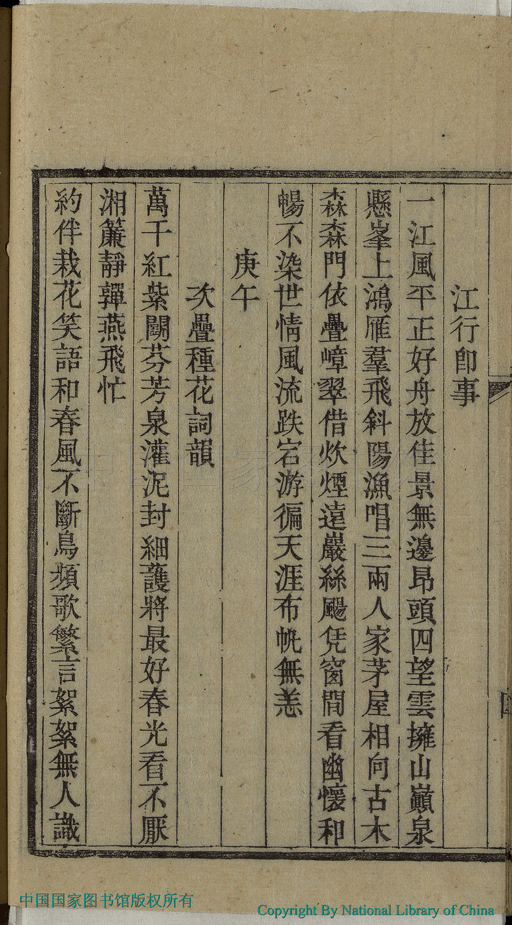 江行即事
一江風平正好舟放佳景無邊昂頭四望雲擁山巔泉
懸峯上鴻雁羣飛斜陽漁唱三兩人家茅屋相向古木
森森門依疊嶂翠借炊煙遠巖絲颺凭窗間看幽懷和
暢不染世情風流跌宕游徧天涯布帆無恙
庚午
次疊種花詞韻
萬千紅紫鬭芬芳泉灌泥封細護將最好春光看不厭
湘簾靜嚲燕飛忙
約伴栽花笑語和春風不斷鳥頻歌繁言絮絮無人識
中国国家图书馆版权所有
Copyright By National Library of China